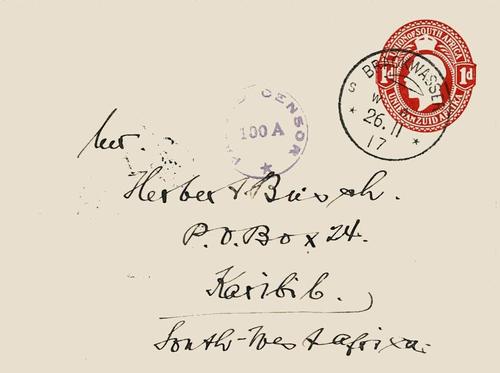 UNION OF SOUTH AFRICA
1d 1d
UNIE VAN ZUID AFRIKA
BRACKWASSE
S W
26. 11
17
CENSOR
100 A
Mr.
Herbert Büsch.
P.O.Box 24.
Karibib.
South-West afrika.